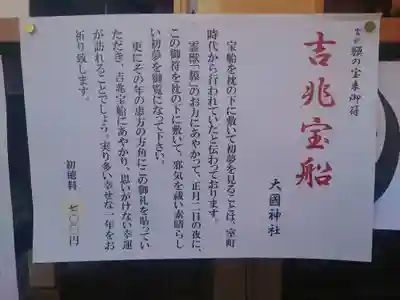 貘の宝来御符
吉兆宝船
大國神社
宝船を枕の下に敷いて初夢を見ることは、室町
時代から行われていたと伝わっております。
霊獣「貘」のお力にあやかって、正月二日の夜に、
この御符を枕の下に敷いて、邪気を祓い素晴らし
い初夢を御覧になって下さい。
更にその年の恵方の方角にこの御札を貼ってい
ただき、吉兆宝船にあやかり、思いがけない幸運
が訪れることでしょう。実り多い幸せな一年をお
祈り致します。
初穂料
七〇〇円